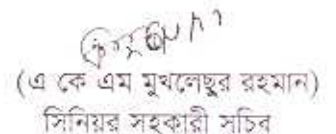 (এ কে এম মুখলেছুর রহমান)
সিনিয়র সহকারী সচিব